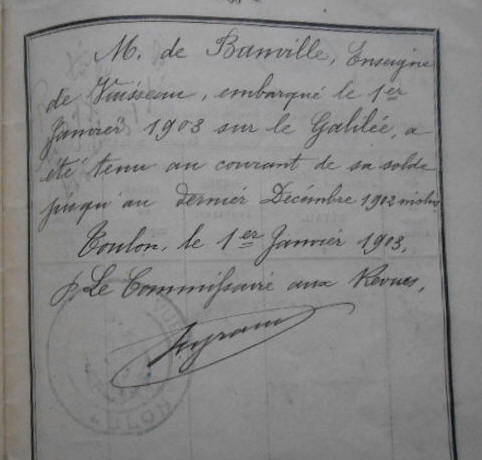 M. de Banville, Enseigne
de Vaisseau, embarqué le 1er
Janvier 1903 sur le Galilée, a
été tenu au courant de sa solde
jusqu'au dernier Décembre 1902 inclus
Toulon, le 1er Janvier 1903.
p. Le Commissaire aux Revues,